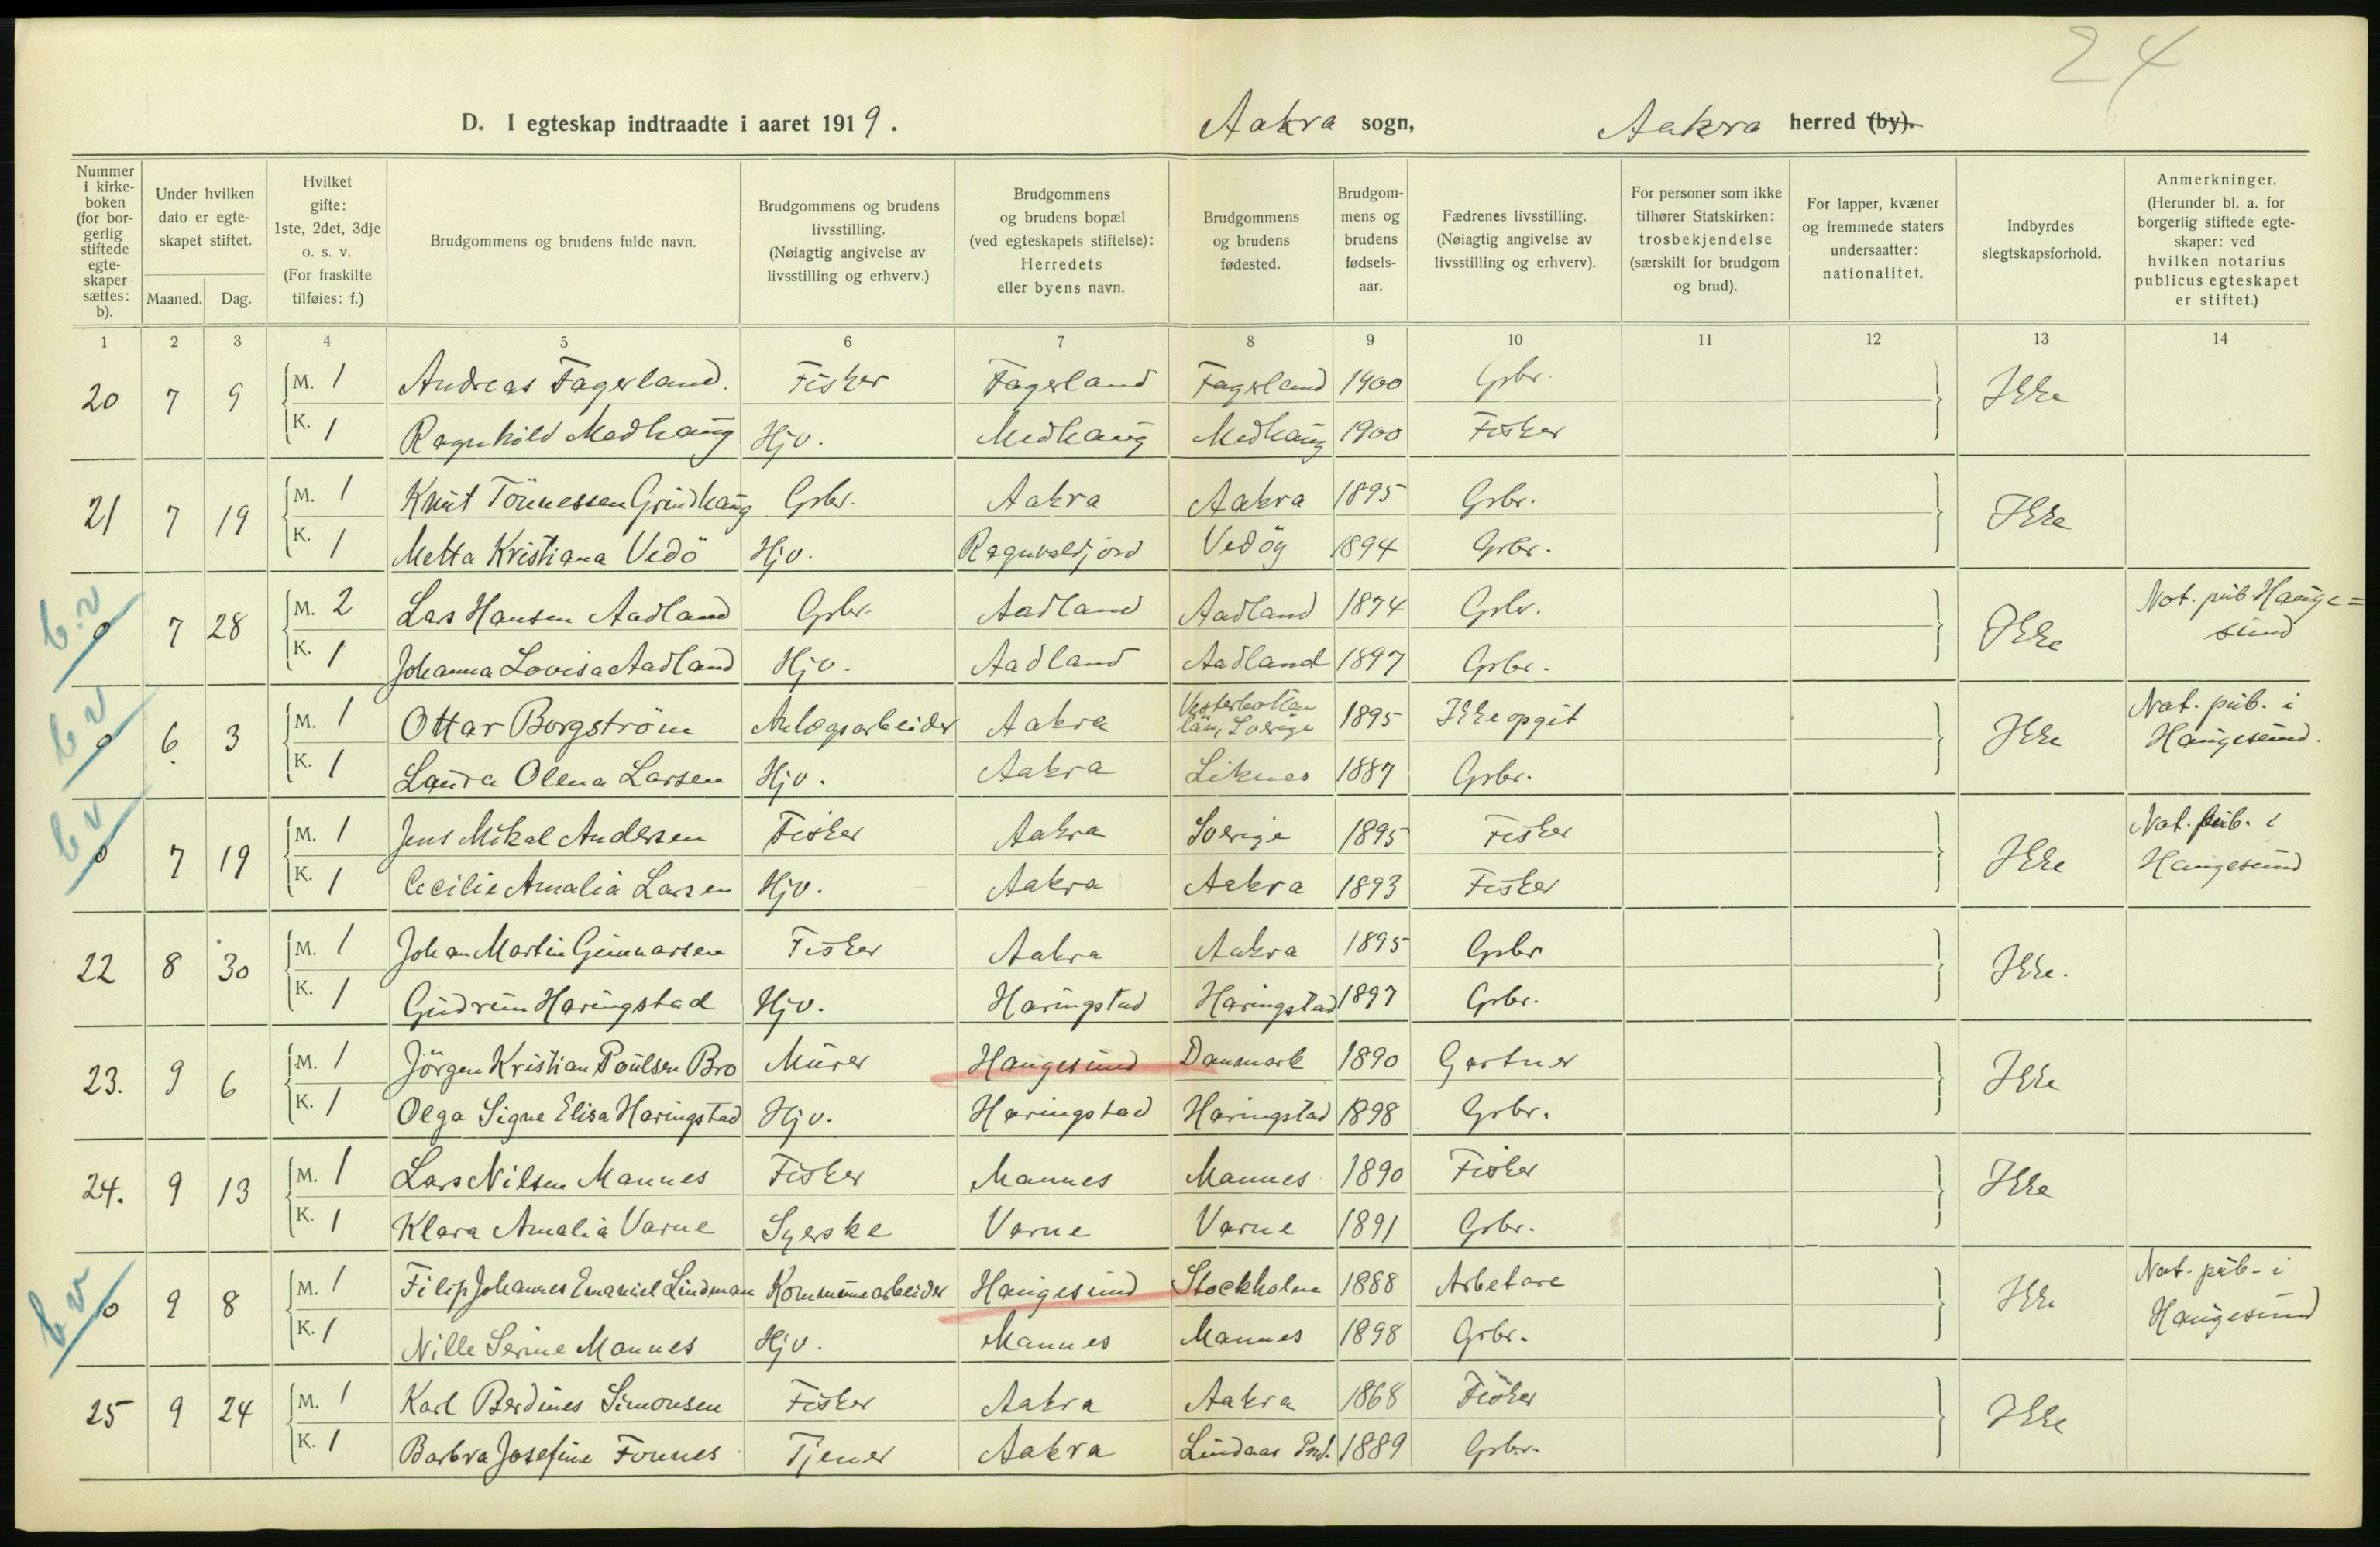 24
D. I egteskap indtraadte i aaret 1919. Aakra sogn, Aakra herred (by).
Nummer i kirke-boken (for bor-gerlig stiftede egte-skaper sættes: b).
Under hvilken dato er egte-skapet stiftet.
Maaned. Dag.
Hvilket gifte: 1ste, 2det, 3dje o. s. v. (For fraskilte tilføies: f.)
Brudgommens og brudens fulde navn.
Brudgommens og brudens livsstilling. (Nøiagtig angivelse av livsstilling og erhverv.)
Brudgommens og brudens bopæl (ved egteskapets stiftelse): Herredets eller byens navn.
Brudgommens og brudens fødested.
Brudgom-mens og brudens fødsels-aar.
Fædrenes livsstilling. (Nøiagtig angivelse av livsstilling og erhverv).
For personer som ikke tilhører Statskirken: trosbekjendelse (særskilt for brudgom og brud).
For lapper, kvæner og fremmede staters undersaatter: nationalitet.
Indbyrdes slegtskapsforhold.
Anmerkninger. (Herunder bl. a. for borgerlig stiftede egte-skaper: ved hvilken notarius publicus egteskapet er stiftet.)
1 2 3 4 5 6 7 8 9 10 11 12 13 14
20 7 9 M. 1 Andreas Fagerland. Fisker Fagerland Fagerland 1900 Grbr. Ikke
K. 1 Ragnhild Medhaug Hjv. Medhaug Medhaug 1900 Fisker
21 7 19 M. 1 Knut Tönnessen Grindhaug Grbr. Aakra Aakra 1895 Grbr. Ikke
K. 1 Metta Kristiana Vedö Hjv. Ragnvaldjord Vedöy 1894 Grbr.
b.v 0 7 28 M. 2 Lars Hansen Aadland Grbr. Aadland Aadland 1874 Grbr. Ikke Not. pub Hauge=
sund
K. 1 Johanna Lovisa Aadland Hjv. Aadland Aadland 1897 Grbr.
b v 0 6. 3 M. 1 Ottar Borgström Anlægsarbeider Aakra Vesterbotten län, Sverige 1895 Ikke opgit Ikke Not. pub. i
Haugesund.
K. 1 Laura Olena Larsen Hjv. Aakra Liknes 1887 Grbr.
b v 0 7 19 M. 1 Jens Mikal Andersen Fisker Aakra Sverige 1895 Fisker Ikke Not. pub. i
Haugesund
K. 1 Cecilie Amalia Larsen Hjv. Aakra Aakra 1893 Fisker
22 8 30 M. 1 Johan Martin Gunnarsen Fisker Aakra Aakra 1895 Grbr Ikke.
K. 1 Gudrun Haringstad Hjv. Haringstad Haringstad 1897 Grbr.
23. 9 6 M. 1 Jörgen Kristian Poulsen Bro Murer Haugesund Danmark 1890 Gartner Ikke
K. 1 Olga Signe Elisa Haringstad Hjv. Haringstad Haringstad 1898 Grbr.
24. 9 13 M. 1 Lars Nilsen Mannes Fisker Mannes Mannes 1890 Fisker Ikke
K. 1 Klara Amalia Varne Syerske Varne Varne 1891 Grbr.
b v 0 9 8 M. 1 Filip Johannes Emanuel Lindman Kommunearbeider Haugesund Stockholm 1888 Arbetare Ikke Not. pub. i
Haugesund
K. 1 Nille Serine Mannes Hjv. Mannes Mannes 1898 Grbr.
25 9 24 M. 1 Karl Berdines Simonsen Fisker Aakra Aakra 1868 Fisker Ikke
K. 1 Barbra Josefine Fonnes Tjener Aakra Lindaas Prd. 1889 Grbr.